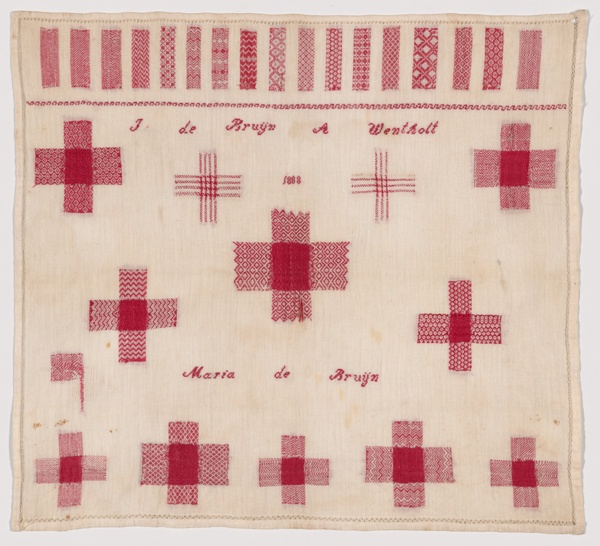 J de Bruÿn A Wentholt
1808
Maria de Bruÿn